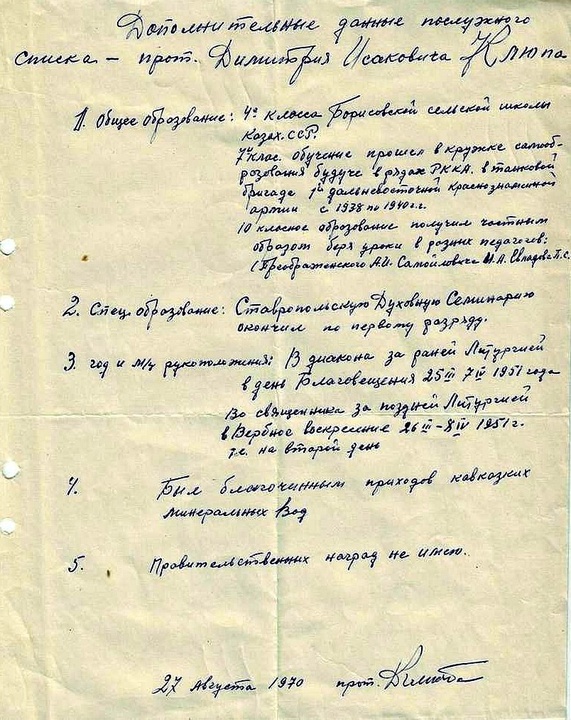 Дополнительные данные послужного
списка — прот. Димитрия Исаковича Клюпа
1. Общее образование: 4е класса Борисовской сельской школы
Казах. ССР.
7и клас. обучение прошел в кружке самооб-
разования будуче в рядах РККА. в танковой
бригаде 1й дальневосточной краснознаменной
армии с 1938 по 1940 г.г.
10 класное образование получил частным
образом беря уроки в разных педагогев:
(Преображенского А.И. Самойловича М.А. Евладова П.С.
2. Спец. образование: Ставропольскую Духовную Семинарию
окончил по первому разряду.
3. год и м/ц рукоположения: В диакона за раней Литургией
в день Благовещения 25 III 7 IV 1951 года
Во священника за поздней Литургией
в Вербное воскресение 26 III – 8 IV 1951 г.
т.е. на второй день
4. Был благочинным приходов кавказких
минеральных Вод
5. Правительственных наград не имею.
27 Августа 1970 прот.